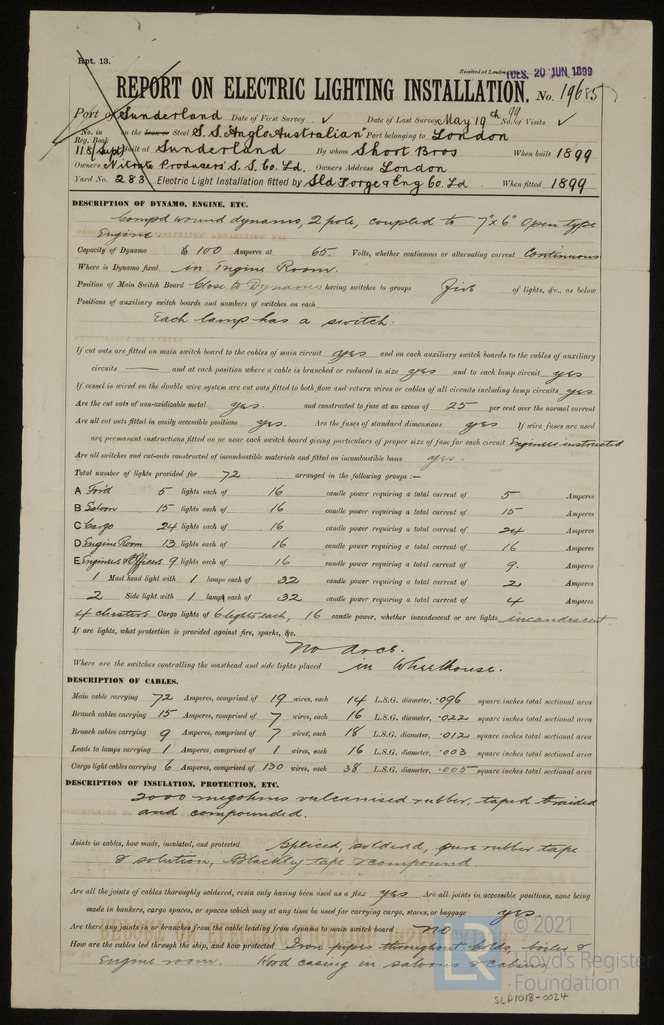 Rpt. 13.
Received at London Office TUES. 20 JUN 1899
REPORT ON ELECTRIC LIGHTING INSTALLATION. No. 19685
Port of Sunderland Date of First Survey ✓ Date of Last Survey May 19th 99 No. of Visits ✓
No. in Reg. Book 118 (Supt) on the Iron or Steel S.S. "Anglo Australian" Port belonging to London
Built at Sunderland By whom Short Bros When built 1899
Owners Nitrate Producers' S.S. Co. Ld. Owners Address London
Yard No. 283 Electric Light Installation fitted by Sld Forge & Eng Co. Ld When fitted 1899
DESCRIPTION OF DYNAMO, ENGINE, ETC.
Comp'd wound dynamo, 2 pole, coupled to 7"x 6" Open type
Engine
Capacity of Dynamo 100 Amperes at 65. Volts, whether continuous or alternating current Continuous
Where is Dynamo fixed in Engine Room.
Position of Main Switch Board Close to Dynamo having switches to groups five of lights, &c., as below
Positions of auxiliary switch boards and numbers of switches on each
Each lamp has a switch.
If cut outs are fitted on main switch board to the cables of main circuit yes and on each auxiliary switch boards to the cables of auxiliary
circuits — and at each position where a cable is branched or reduced in size yes and to each lamp circuit yes
If vessel is wired on the double wire system are cut outs fitted to both flow and return wires or cables of all circuits including lamp circuits yes
Are the cut outs of non-oxidizable metal yes. and constructed to fuse at an excess of 25 per cent over the normal current
Are all cut outs fitted in easily accessible positions yes. Are the fuses of standard dimensions yes If wire fuses are used
are permanent instructions fitted on or near each switch board giving particulars of proper size of fuse for each circuit Engineers instructed
Are all switches and cut-outs constructed of incombustible materials and fitted on incombustible bases yes.
Total number of lights provided for 72 arranged in the following groups :—
A For'd 5 lights each of 16 candle power requiring a total current of 5 Amperes
B Saloon 15 lights each of 16 candle power requiring a total current of 15 Amperes
C Cargo 24 lights each of 16 candle power requiring a total current of 24 Amperes
D Engine Room 13 lights each of 16 candle power requiring a total current of 16 Amperes
E Engineers & Officers 9 lights each of 16 candle power requiring a total current of 9. Amperes
1 Mast head light with 1 lamps each of 32 candle power requiring a total current of 2 Amperes
2 Side light with 1 lamps each of 32 candle power requiring a total current of 4 Amperes
4 clusters Cargo lights of 6 lights each, 16 candle power, whether incandescent or arc lights incandescent
If arc lights, what protection is provided against fire, sparks, &c.
No arcs.
Where are the switches controlling the masthead and side lights placed in Wheelhouse.
DESCRIPTION OF CABLES.
Main cable carrying 72 Amperes, comprised of 19 wires, each 14 L.S.G. diameter, .096 square inches total sectional area
Branch cables carrying 15 Amperes, comprised of 7 wires, each 16 L.S.G. diameter, .022 square inches total sectional area
Branch cables carrying 9 Amperes, comprised of 7 wires, each 18 L.S.G. diameter, .012 square inches total sectional area
Leads to lamps carrying 1 Amperes, comprised of 1 wires, each 16 L.S.G. diameter, .003 square inches total sectional area
Cargo light cables carrying 6 Amperes, comprised of 130 wires, each 38 L.S.G. diameter, .005 square inches total sectional area
DESCRIPTION OF INSULATION, PROTECTION, ETC.
2000 megohms vulcanised rubber, taped braided
and compounded.
Joints in cables, how made, insulated, and protected Spliced, soldered, pure rubber tape
& solution, Blackley tape & compound.
Are all the joints of cables thoroughly soldered, resin only having been used as a flux yes Are all joints in accessible positions, none being
made in bunkers, cargo spaces, or spaces which may at any time be used for carrying cargo, stores, or baggage yes.
Are there any joints in or branches from the cable leading from dynamo to main switch board no
How are the cables led through the ship, and how protected Iron pipes throughout holds, boiler &
Engine room. Wood casing in saloons & cabins
LR
© 2021
Lloyd's Register
Foundation
SLD1018-0024